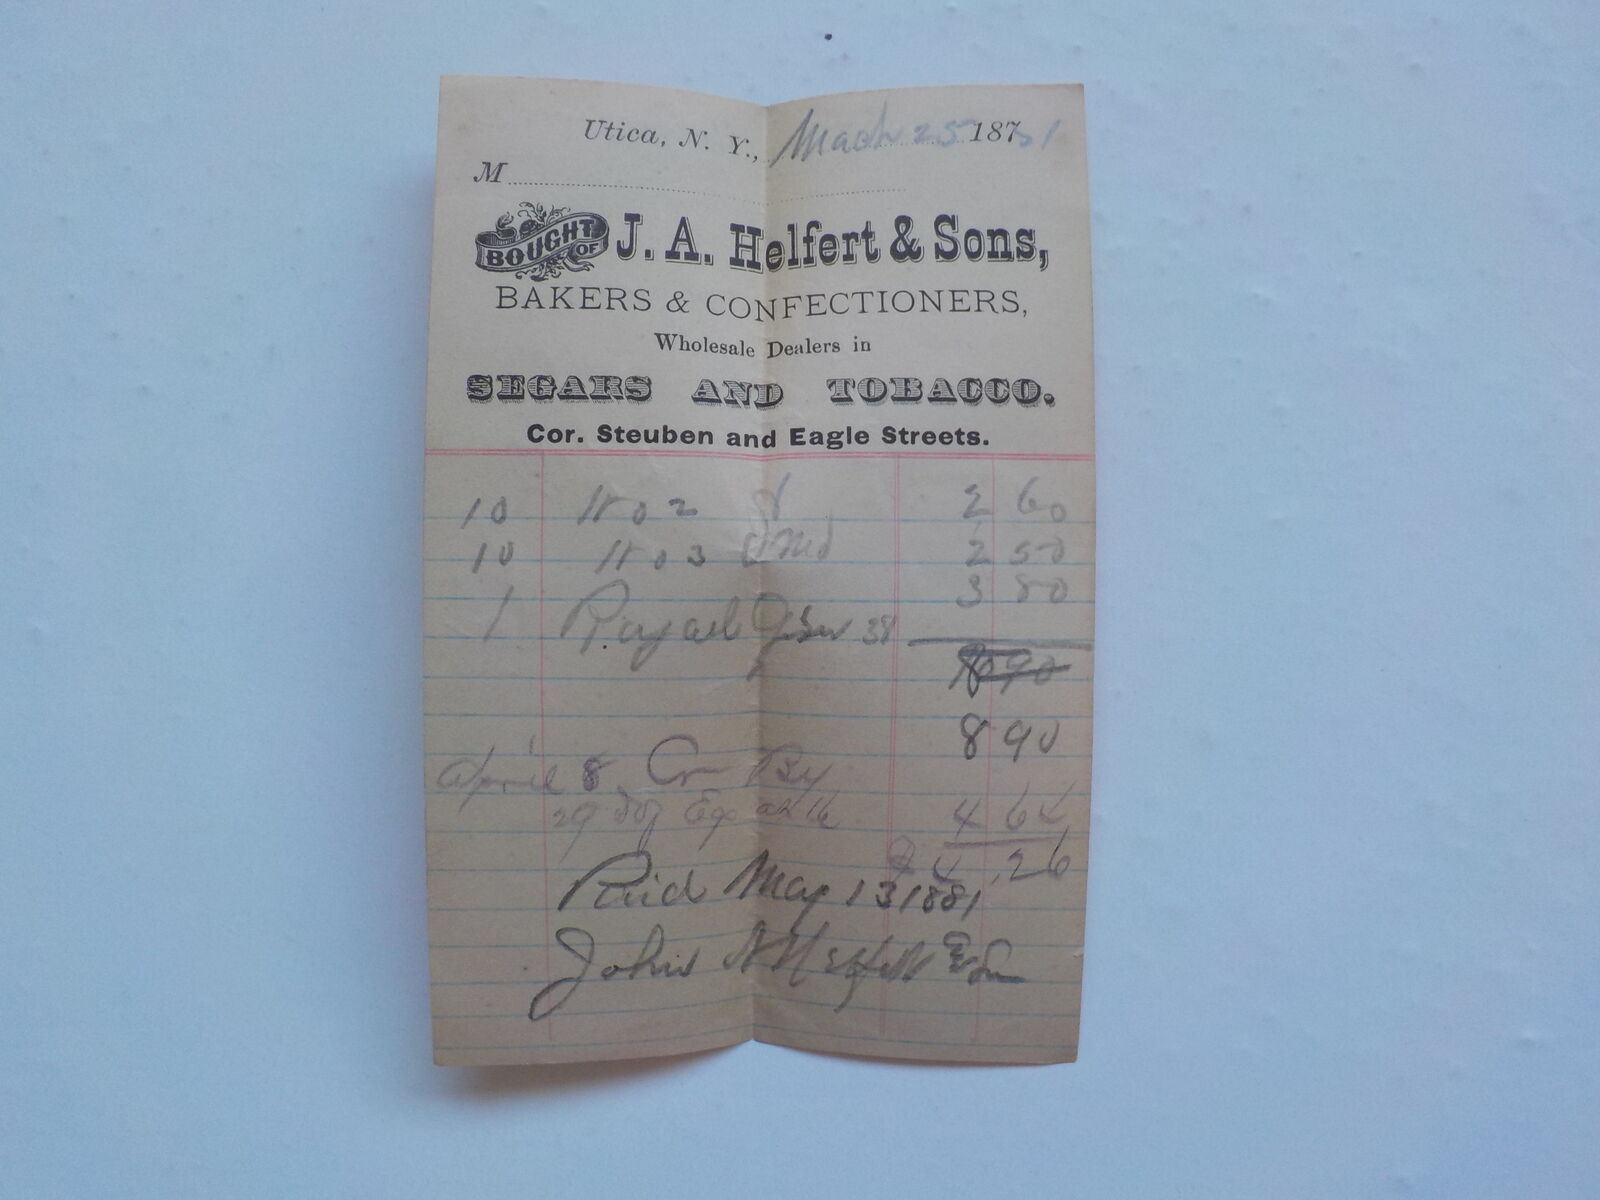 Utica, N. Y., Mach 25 187 81
M
BOUGHT OF J. A. Helfert & Sons,
BAKERS & CONFECTIONERS,
Wholesale Dealers in
SEGARS AND TOBACCO.
Cor. Steuben and Eagle Streets.
10 No 2 2 60
10 No 3 2 50
1 38 3 80
8 90
April 8 Cr By
29 Doz Eg at 16 4 64
4.26
Paid May 13 1881
John